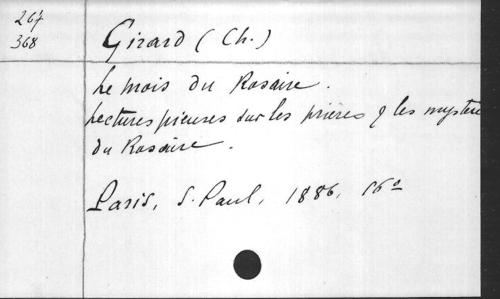 267
368
Girard (Ch.)
Le mois du Rosaire.
Lectures pieuses sur les prières & les mystères
du Rosaire.
Paris, S. Paul, 1886, 16º